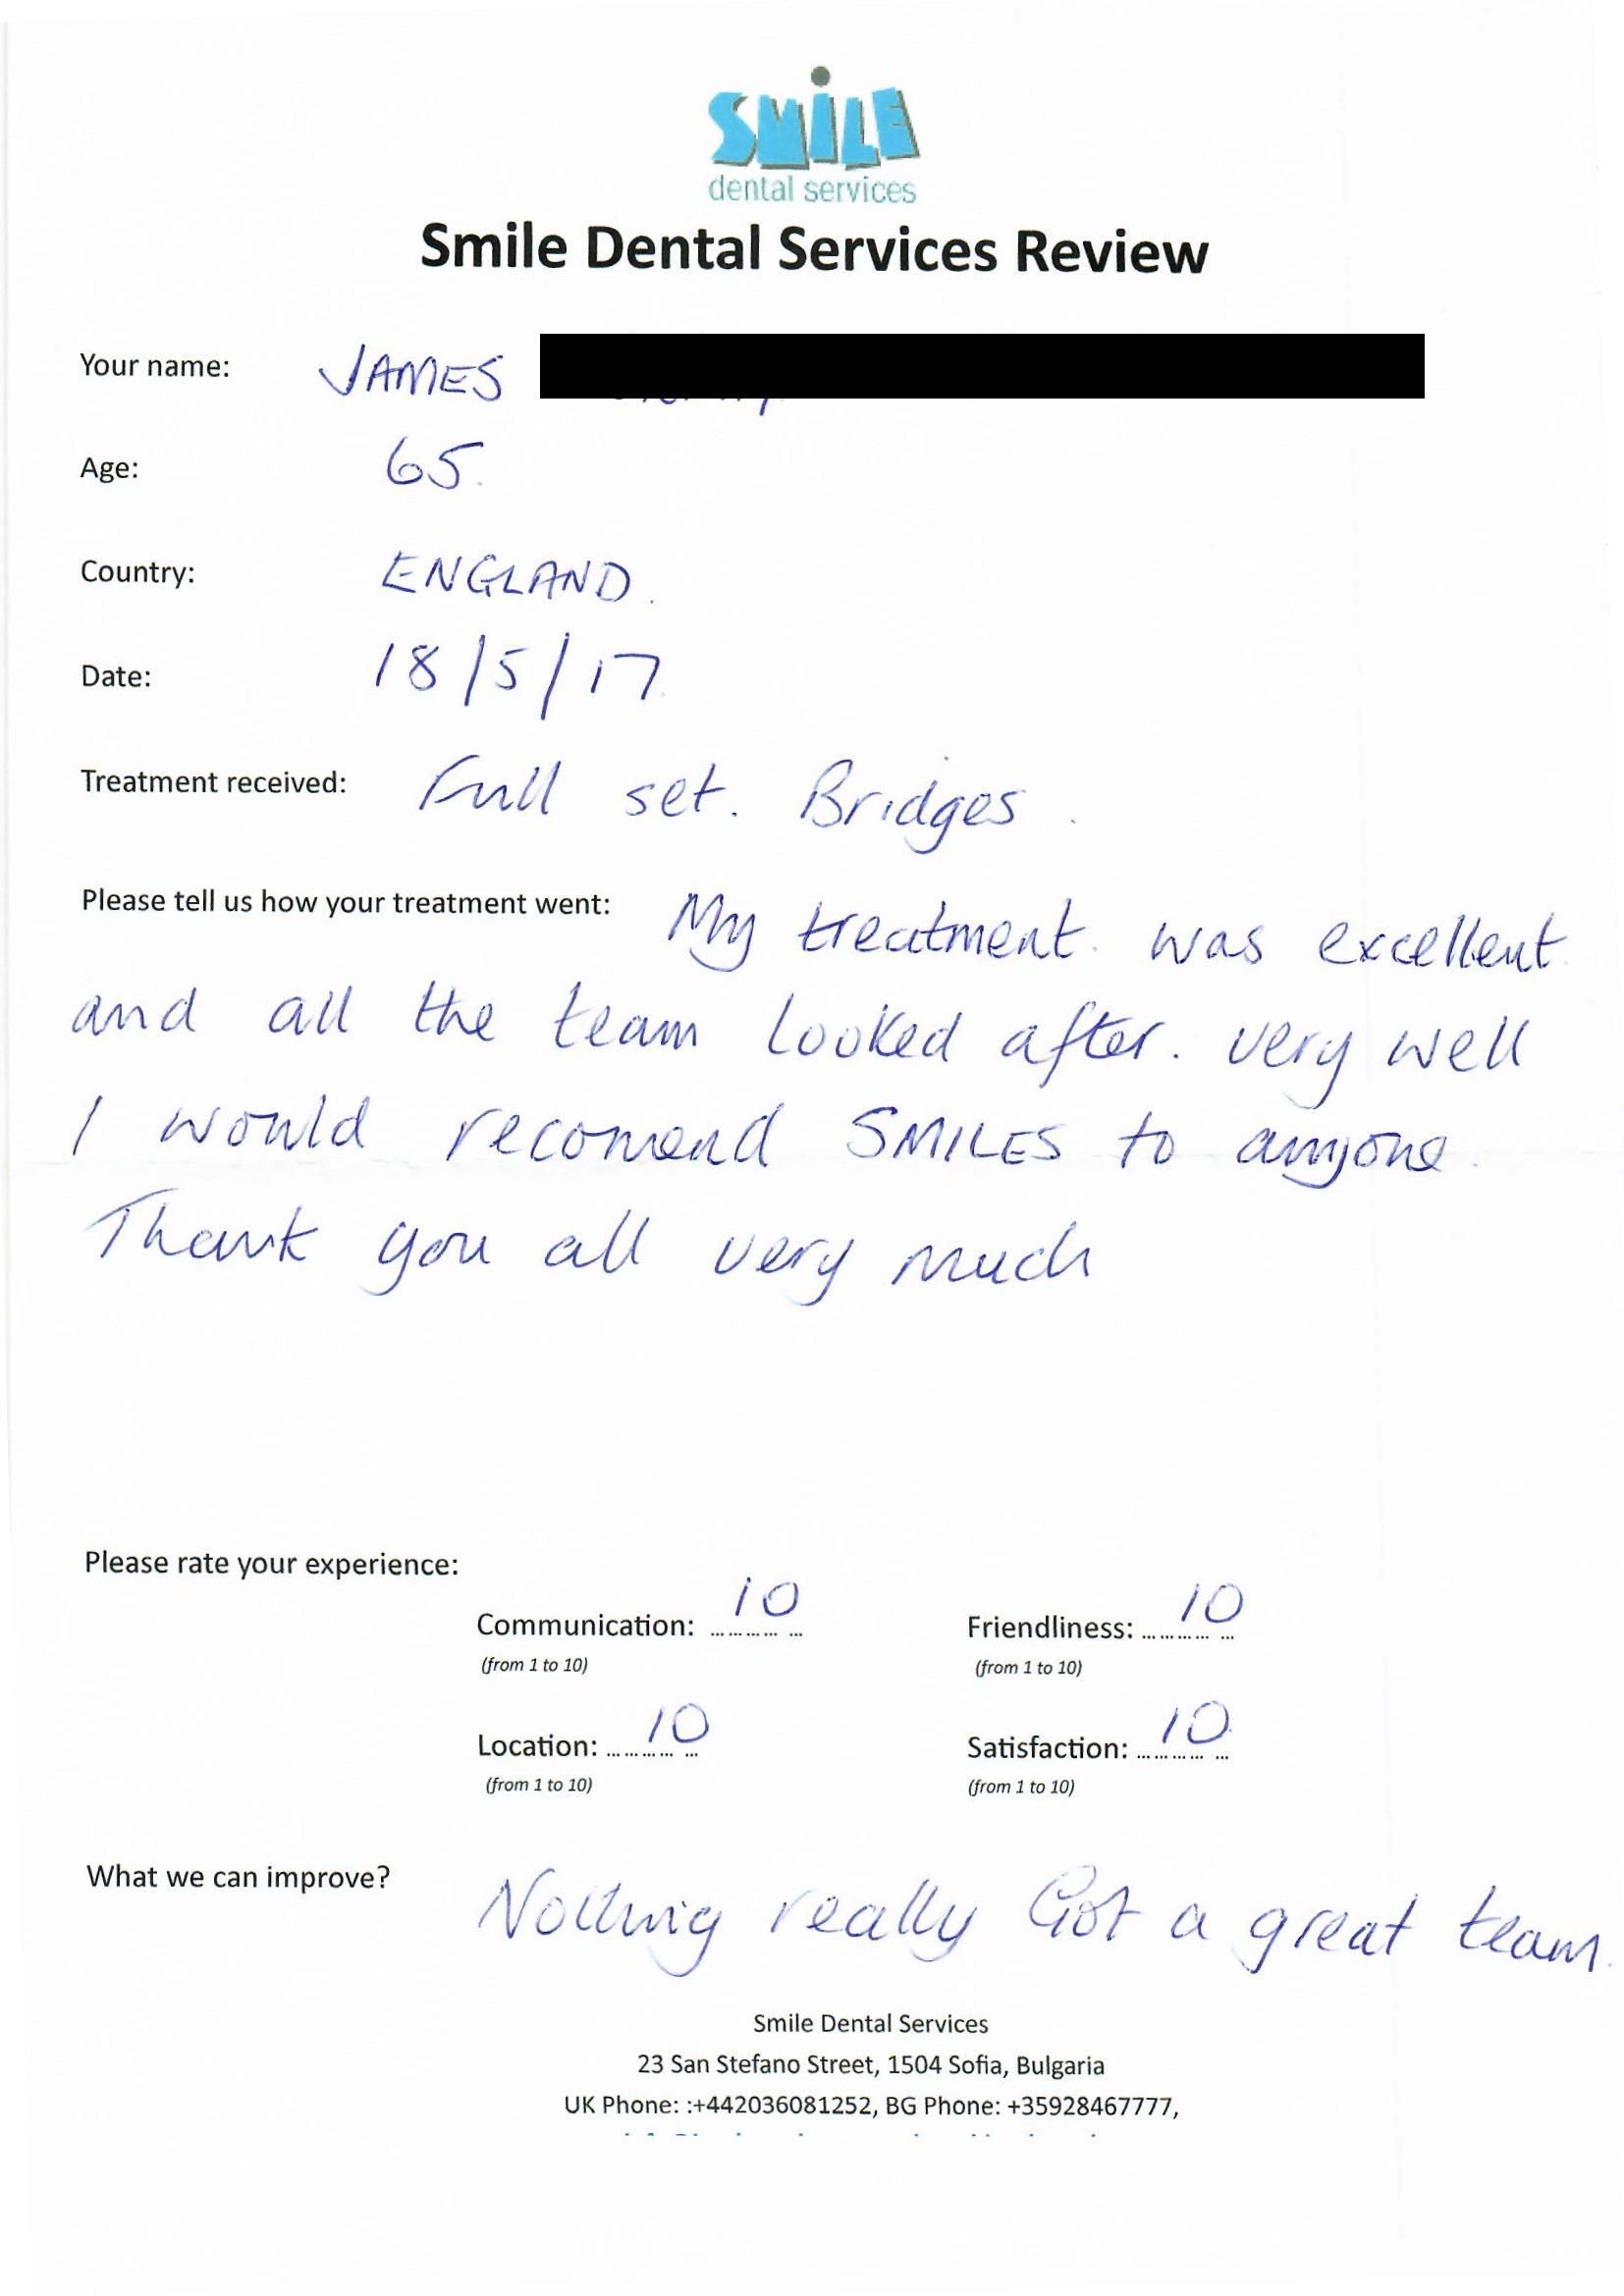 SMiLE
dental services
Smile Dental Services Review
Your name: JAMES
Age: 65.
Country: ENGLAND.
Date: 18/5/17.
Treatment received: Full set. Bridges.
Please tell us how your treatment went: My treatment. was excellent
and all the team looked after. very well
I would recomend SMILES to anyone.
Thank you all very much
Please rate your experience:
Communication: 10 Friendliness: 10
(from 1 to 10) (from 1 to 10)
Location: 10 Satisfaction: 10
(from 1 to 10) (from 1 to 10)
What we can improve? Nothing really Got a great team.
Smile Dental Services
23 San Stefano Street, 1504 Sofia, Bulgaria
UK Phone: :+442036081252, BG Phone: +35928467777,